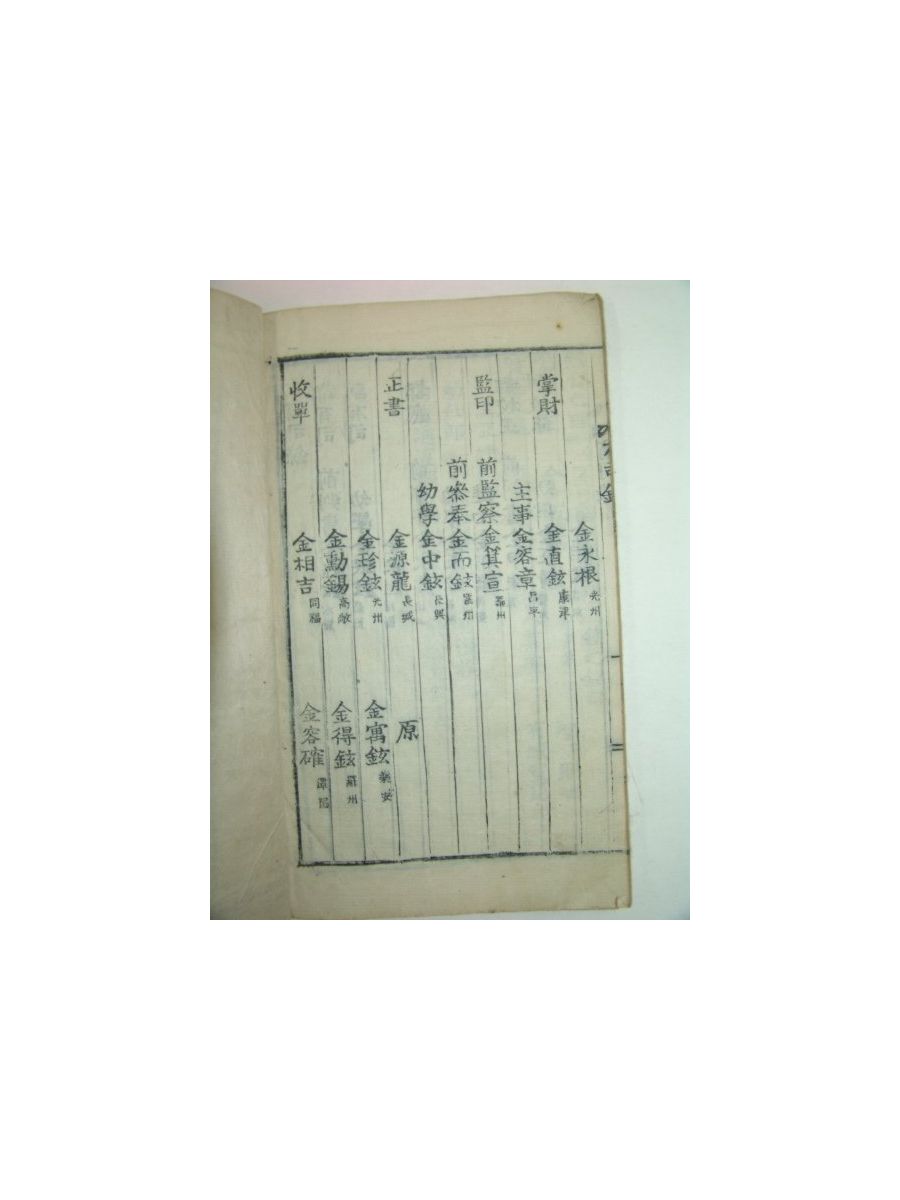 金永根 光州
掌財 金直鉉 康津
主事 金容章 昌平
監印 前監察 金箕宣 羅州
前參奉 金而鉉 羅州
幼學 金中鉉 長興
正書 金源龍 長城 原
金珍鉉 光州 金寓鉉 樂安
金勳錫 高敞 金得鉉 羅州
收單 金相吉 同福 金容確 潭陽